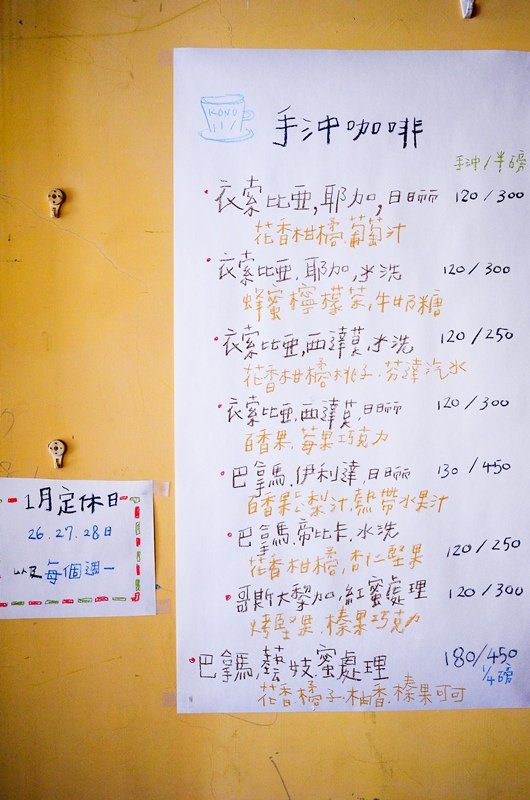 KONO
手沖咖啡
手沖/半磅
衣索比亞,耶加,日曬 120/300
花香柑橘.葡萄汁
衣索比亞.耶加,水洗 120/300
蜂蜜檸檬茶,牛奶糖
衣索比亞,西達莫,水洗 120/250
花香柑橘桃子.芬達汽水
衣索比亞,西達莫,日曬 120/300
百香果.莓果巧克力
巴拿馬.伊利達,日曬 130/450
百香果.梨汁.熱帶水果汁
巴拿馬.帝比卡.水洗 120/250
花香柑橘,杏仁堅果
哥斯大黎加,紅蜜處理 120/300
烤堅果.榛果巧克力
巴拿馬,藝妓.蜜處理 180/450
1/4磅
花香.橘子.柚香.榛果可可
1月定休日
26.27.28日
以及每個週一